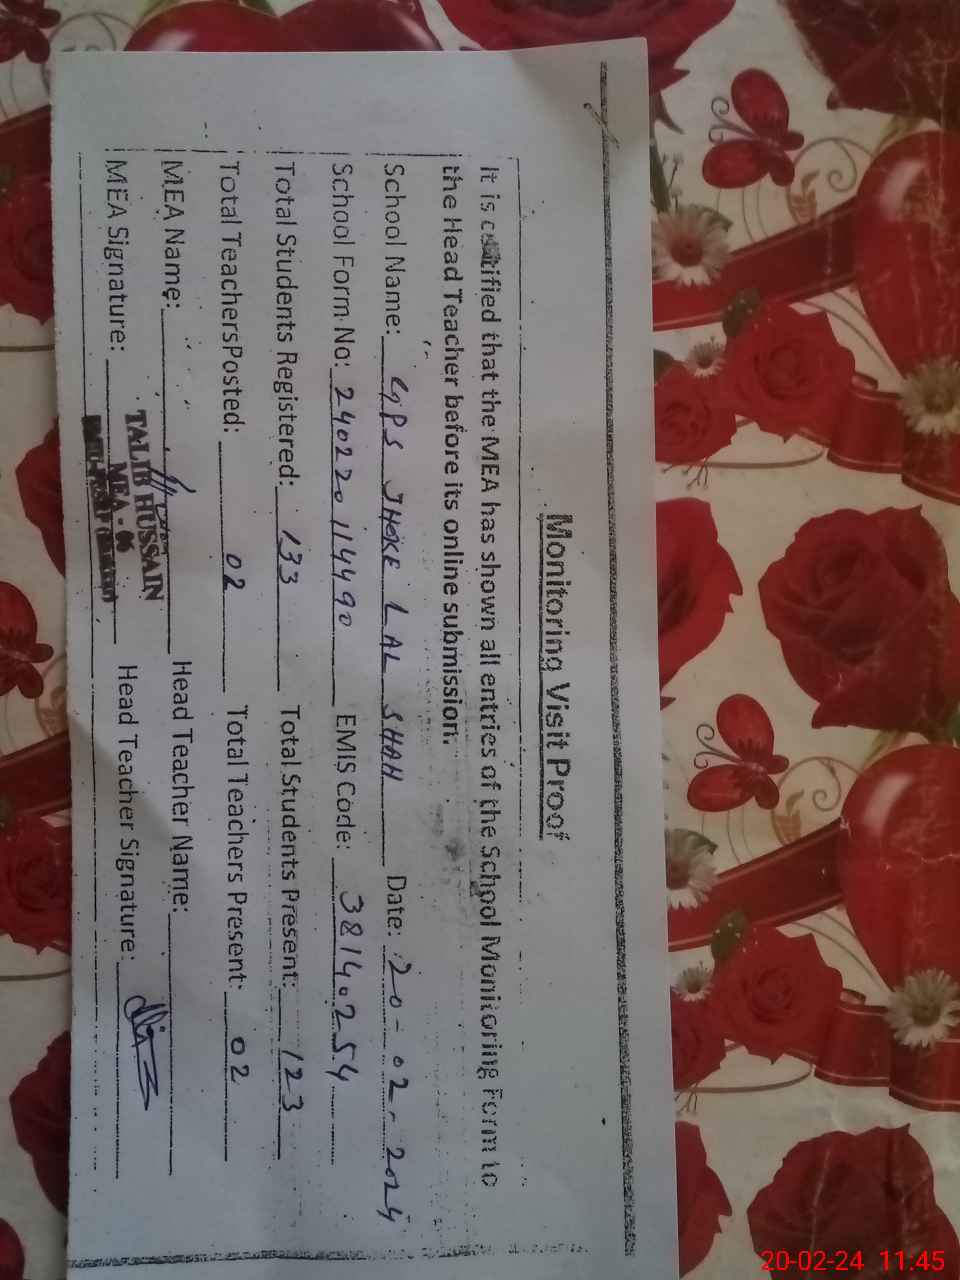 Monitoring Visit Proof
It is certified that the MEA has shown all entries of the School Monitoring Form to
the Head Teacher before its online submission.
School Name: GPS JHOKE LAL SHAH Date: 20-02-2024
School Form No: 2402201 14490 EMIS Code: 38140254
Total Students Registered: 133 Total Students Present: 123
Total Teachers Posted: 02 Total Teachers Present: 02
MEA Name: Head Teacher Name:
TALIB HUSSAIN
MEA Signature: Head Teacher Signature:
MEA - 06
20-02-24 11:45